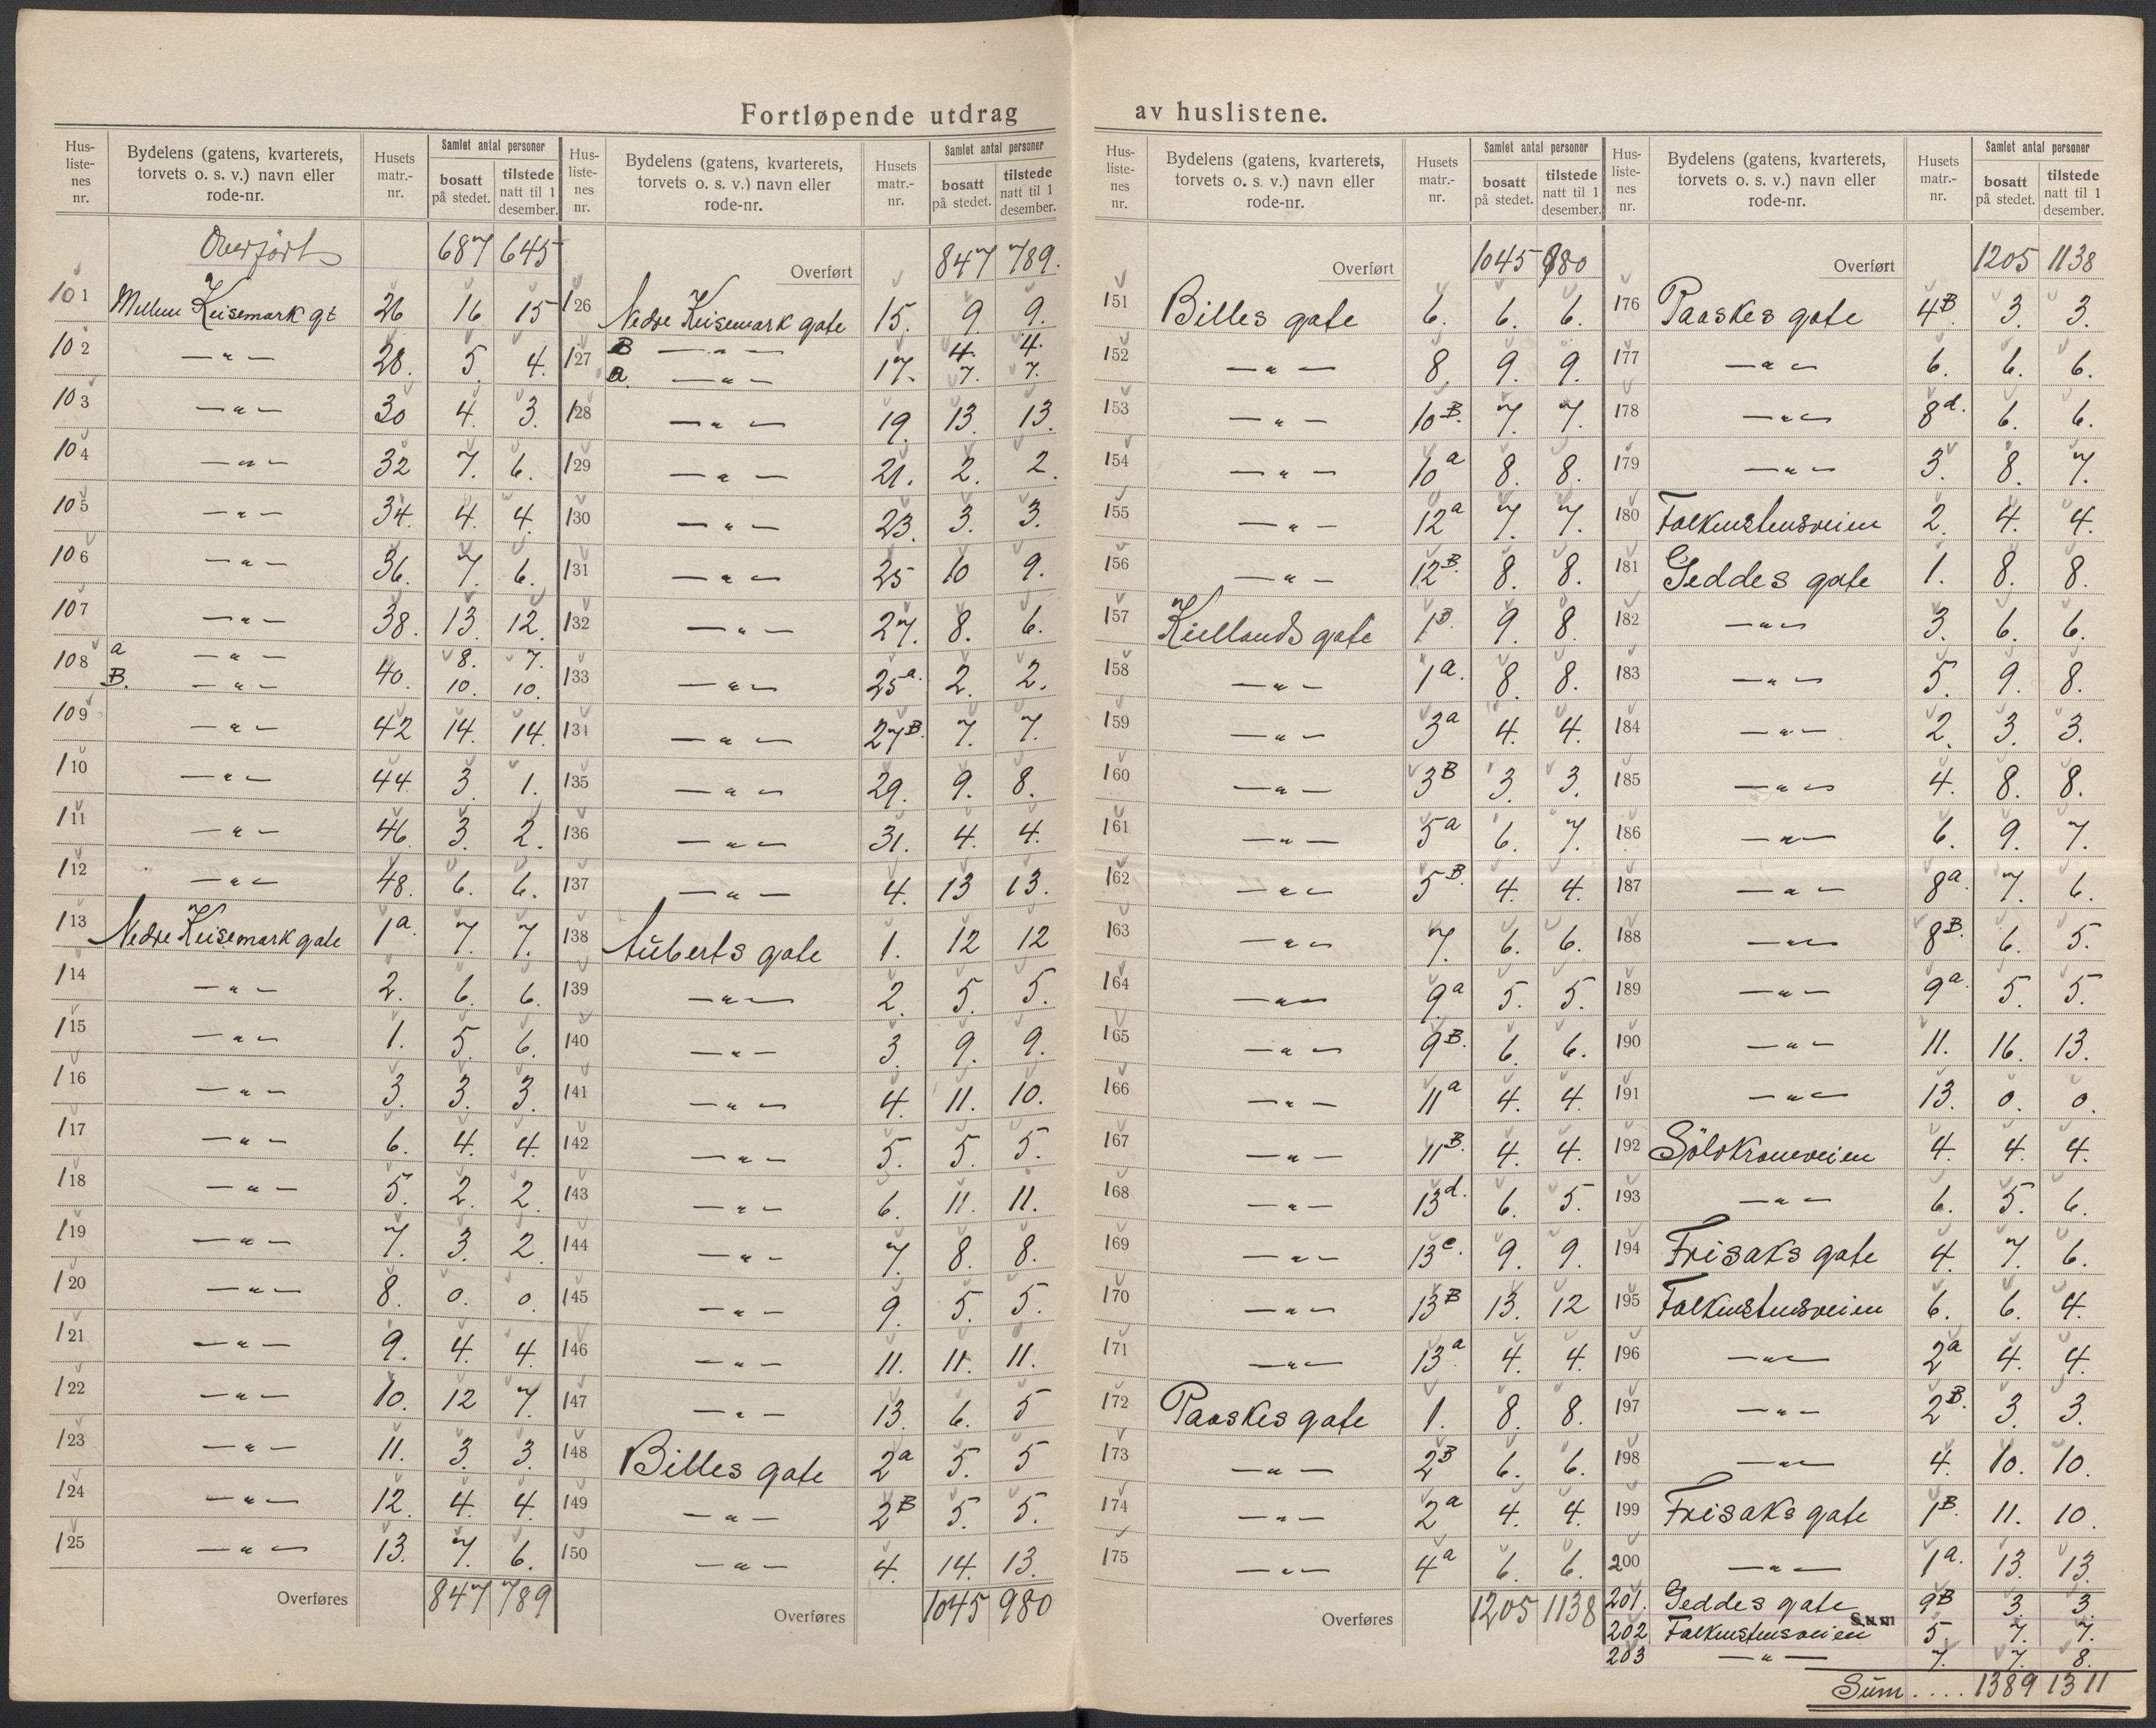 Fortløpende utdrag av huslistene.
Hus-liste-nes nr. | Bydelens (gatens, kvarterets, torvets o. s. v.) navn eller rode-nr. | Husets matr.-nr. | Samlet antal personer: bosatt på stedet. | tilstede natt til 1 desember.
Overført 687 645
101 Mellem Keisemark gt 26 16 15
102 —"— 28. 5. 4.
103 —"— 30 4. 3.
104 —"— 32 7. 6.
105 —"— 34. 4. 4.
106 —"— 36. 7. 6.
107 —"— 38. 13. 12.
108 a —"— 40. 8. 7.
B. —"— 10. 10.
109 —"— 42 14. 14.
110 —"— 44. 3. 1.
111 —"— 46. 3. 2.
112 —"— 48. 6. 6.
113 Nedre Keisemark gate 1a. 7. 7.
114 —"— 2. 6. 6.
115 —"— 1. 5. 6.
116 —"— 3. 3. 3.
117 —"— 6. 4. 4.
118 —"— 5. 2. 2.
119 —"— 7. 3. 2.
120 —"— 8. 0. 0.
121 —"— 9. 4. 4.
122 —"— 10. 12 7.
123 —"— 11. 3. 3.
124 —"— 12. 4. 4.
125 —"— 13. 7. 6.
Overføres 847 789
Hus-liste-nes nr. | Bydelens (gatens, kvarterets, torvets o. s. v.) navn eller rode-nr. | Husets matr.-nr. | Samlet antal personer: bosatt på stedet. | tilstede natt til 1 desember.
Overført 847 789.
126 Nedre Keisemark gate 15. 9 9.
127 B —"— 17. 4. 4.
a. —"— 7. 7.
128 —"— 19. 13. 13.
129 —"— 21. 2. 2.
130 —"— 23. 3. 3.
131 —"— 25 10 9.
132 —"— 27. 8. 6.
133 —"— 25a. 2. 2.
134 —"— 27B. 7. 7.
135 —"— 29. 9. 8.
136 —"— 31. 4. 4.
137 —"— 4. 13 13.
138 Auberts gate 1. 12 12
139 —"— 2. 5. 5.
140 —"— 3. 9. 9.
141 —"— 4. 11. 10.
142 —"— 5. 5. 5.
143 —"— 6. 11. 11.
144 —"— 7. 8. 8.
145 —"— 9. 5. 5.
146 —"— 11. 11. 11.
147 —"— 13. 6. 5
148 Billes gate 2a 5. 5
149 —"— 2B 5. 5.
150 —"— 4. 14. 13.
Overføres 1045 980
Hus-liste-nes nr. | Bydelens (gatens, kvarterets, torvets o. s. v.) navn eller rode-nr. | Husets matr.-nr. | Samlet antal personer: bosatt på stedet. | tilstede natt til 1 desember.
Overført 1045 980
151 Billes gate 6. 6. 6.
152 —"— 8. 9. 9.
153 —"— 10B. 7. 7.
154 —"— 10a 8. 8.
155 —"— 12a 7. 7.
156 —"— 12B. 8. 8.
157 Kiellands gate 1B. 9. 8.
158 —"— 1a. 8. 8.
159 —"— 3a 4. 4.
160 —"— 3B 3. 3.
161 —"— 5a 6. 7.
162 —"— 5B. 4. 4.
163 —"— 7. 6. 6.
164 —"— 9a 5. 5.
165 —"— 9B. 6. 6.
166 —"— 11a 4. 4.
167 —"— 11B. 4. 4.
168 —"— 13d. 6. 5.
169 —"— 13c. 9. 9.
170 —"— 13B 13. 12
171 —"— 13a. 4. 4.
172 Paaskes gate 1. 8. 8.
173 —"— 2B 6. 6.
174 —"— 2a 4. 4.
175 —"— 4a 6. 6.
Overføres 1205 1138
Hus-liste-nes nr. | Bydelens (gatens, kvarterets, torvets o. s. v.) navn eller rode-nr. | Husets matr.-nr. | Samlet antal personer: bosatt på stedet. | tilstede natt til 1 desember.
Overført 1205 1138
176 Paaskes gate 4B. 3. 3.
177 —"— 6. 6. 6.
178 —"— 8d. 6. 6.
179 —"— 3. 8. 7.
180 Falkenstensveien 2. 4. 4.
181 Geddes gate 1. 8. 8.
182 —"— 3. 6. 6.
183 —"— 5. 9. 8.
184 —"— 2. 3. 3.
185 —"— 4. 8. 8.
186 —"— 6. 9. 7.
187 —"— 8a. 7. 6.
188 —"— 8B. 6. 5.
189 —"— 9a. 5. 5.
190 —"— 11. 16. 13.
191 —"— 13. 0. 0.
192 Sölvkroneveien 4. 4. 4.
193 —"— 6. 5. 6.
194 Frisaks gate 4. 7. 6.
195 Falkenstensveien 6. 6. 4.
196 —"— 2a 4. 4.
197 —"— 2B. 3. 3.
198 —"— 4. 10. 10.
199 Frisaks gate 1B. 11. 10.
200 —"— 1a. 13. 13.
201. Geddes gate 9B 3. 3.
Sum
202 Falkenstensveien 5 7. 7.
203 —"— 7. 7. 8.
Sum.... 1389 1311